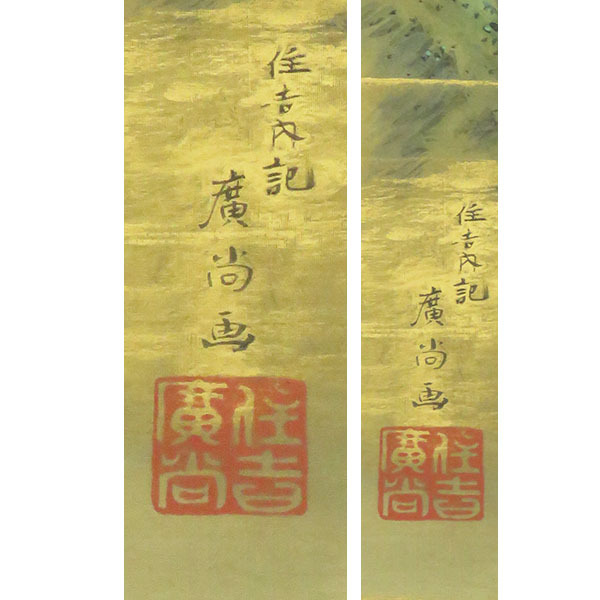 住吉内記
廣尚画
住吉
廣尚
住吉内記
廣尚画
住吉
廣尚